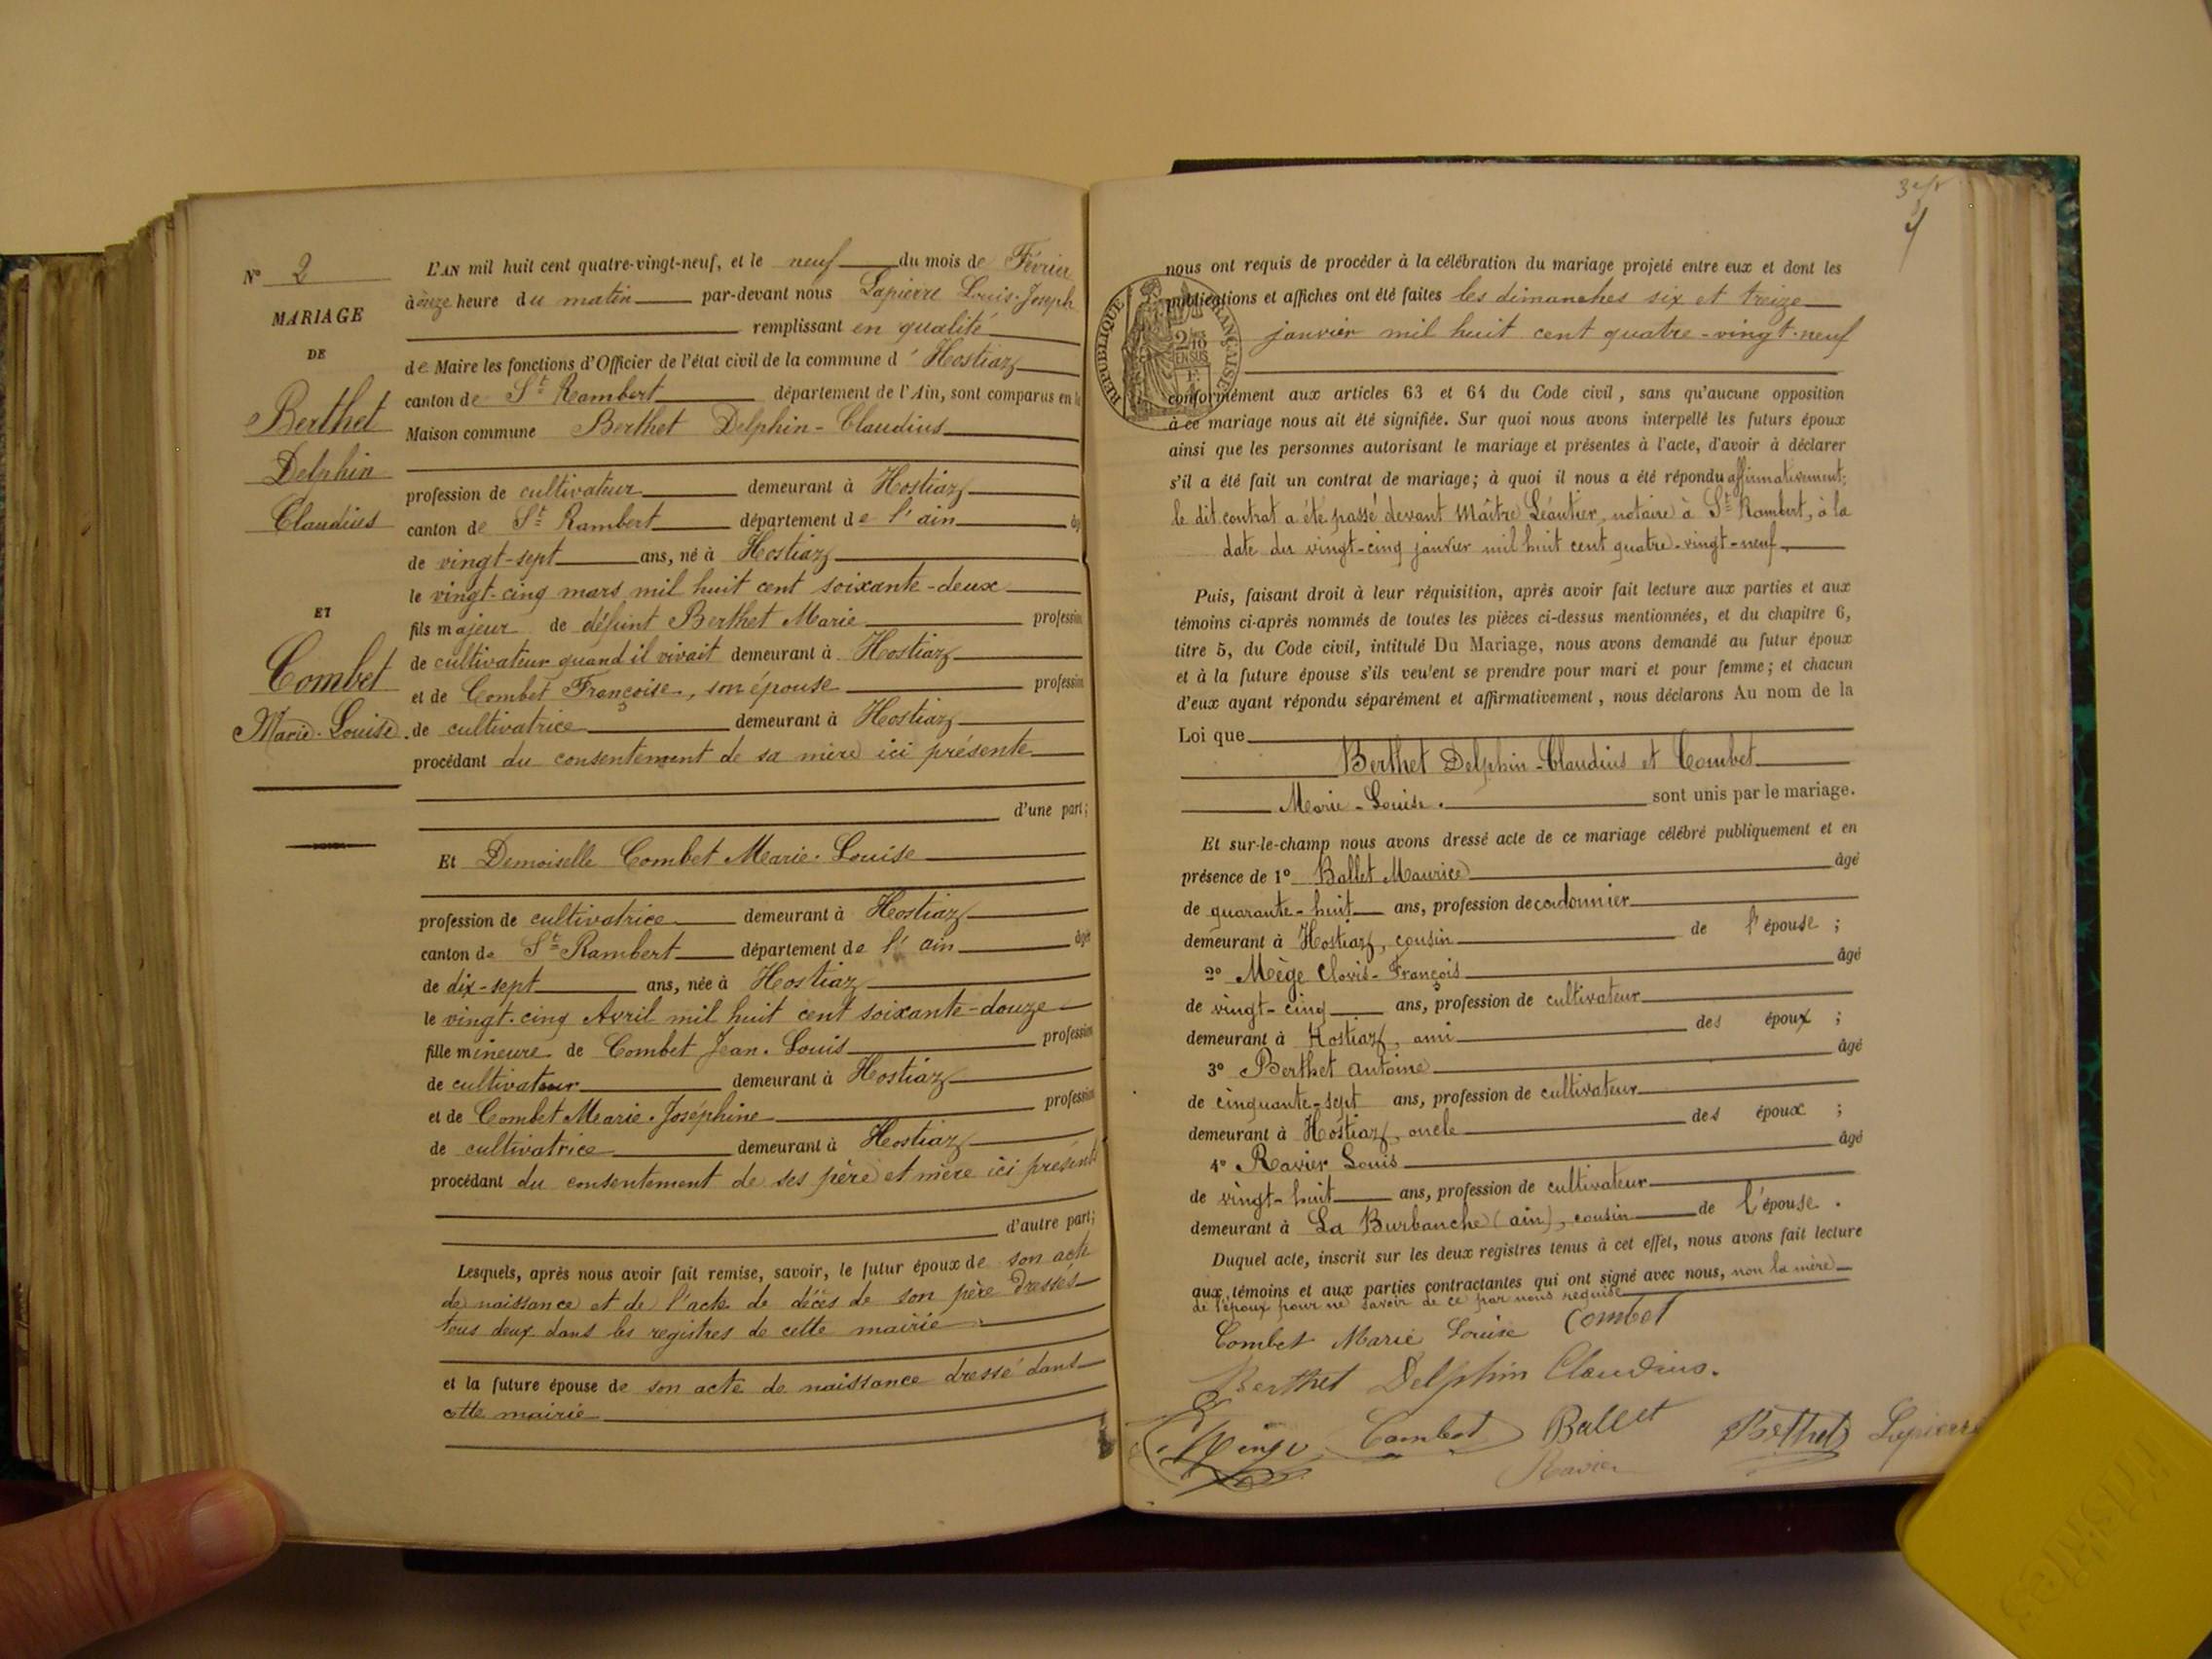 N° 2
MARIAGE
DE
Berthet
Delphin
Claudius
ET
Combet
Marie-Louise.
L'AN mil huit cent quatre-vingt-neuf, et le neuf du mois de Février
à onze heure du matin par-devant nous Lapierre Louis-Joseph
remplissant en qualité
de Maire les fonctions d'Officier de l'état civil de la commune d'Hostiaz
canton de St Rambert département de l'Ain, sont comparus en la
Maison commune Berthet Delphin-Claudius
profession de cultivateur demeurant à Hostiaz
canton de St Rambert département de l'ain
de vingt-sept ans, né à Hostiaz
le vingt-cinq mars mil huit cent soixante-deux
fils majeur de défunt Berthet Marie profession
de cultivateur quand il vivait demeurant à Hostiaz
et de Combet Françoise, son épouse profession
de cultivatrice demeurant à Hostiaz
procédant du consentement de sa mère ici présente
d'une part;
Et Demoiselle Combet Marie-Louise
profession de cultivatrice demeurant à Hostiaz
canton de St Rambert département de l'ain âgée
de dix-sept ans, née à Hostiaz
le vingt-cinq Avril mil huit cent soixante-douze
fille mineure de Combet Jean-Louis profession
de cultivateur demeurant à Hostiaz
et de Combet Marie-Joséphine profession
de cultivatrice demeurant à Hostiaz
procédant du consentement de ses père et mère ici présents
d'autre part;
Lesquels, après nous avoir fait remise, savoir, le futur époux de son acte
de naissance et de l'acte de décès de son père dressés
tous deux dans les registres de cette mairie
et la future épouse de son acte de naissance dressé dans
cette mairie
RÉPUBLIQUE FRANÇAISE
2/10
EN SUS
nous ont requis de procéder à la célébration du mariage projeté entre eux et dont les
publications et affiches ont été faites les dimanches six et treize
janvier mil huit cent quatre-vingt-neuf
conformément aux articles 63 et 64 du Code civil, sans qu'aucune opposition
à ce mariage nous ait été signifiée. Sur quoi nous avons interpellé les futurs époux
ainsi que les personnes autorisant le mariage et présentes à l'acte, d'avoir à déclarer
s'il a été fait un contrat de mariage; à quoi il nous a été répondu affirmativement;
le dit contrat a été passé devant Maître Léautier, notaire à St Rambert, à la
date du vingt-cinq janvier mil huit cent quatre-vingt-neuf.
Puis, faisant droit à leur réquisition, après avoir fait lecture aux parties et aux
témoins ci-après nommés de toutes les pièces ci-dessus mentionnées, et du chapitre 6,
titre 5, du Code civil, intitulé Du Mariage, nous avons demandé au futur époux
et à la future épouse s'ils veulent se prendre pour mari et pour femme; et chacun
d'eux ayant répondu séparément et affirmativement, nous déclarons Au nom de la
Loi que
Berthet Delphin-Claudius et Combet
Marie-Louise. sont unis par le mariage.
Et sur-le-champ nous avons dressé acte de ce mariage célébré publiquement et en
présence de 1° Ballet Maurice âgé
de quarante-huit ans, profession de cordonnier
demeurant à Hostiaz, cousin de l'épouse ;
2° Mège Clovis-François âgé
de vingt-cinq ans, profession de cultivateur
demeurant à Hostiaz, ami des époux ;
3° Berthet Antoine âgé
de cinquante-sept ans, profession de cultivateur
demeurant à Hostiaz, oncle des époux ;
4° Ravier Louis âgé
de vingt-huit ans, profession de cultivateur
demeurant à La Burbanche (ain), cousin de l'épouse.
Duquel acte, inscrit sur les deux registres tenus à cet effet, nous avons fait lecture
aux témoins et aux parties contractantes qui ont signé avec nous, non la mère
de l'époux pour ne savoir de ce par nous requise
Combet Marie Louise Combet
Berthet Delphin Claudius.
Combet Ballet Berthet Lapierre
Ravier